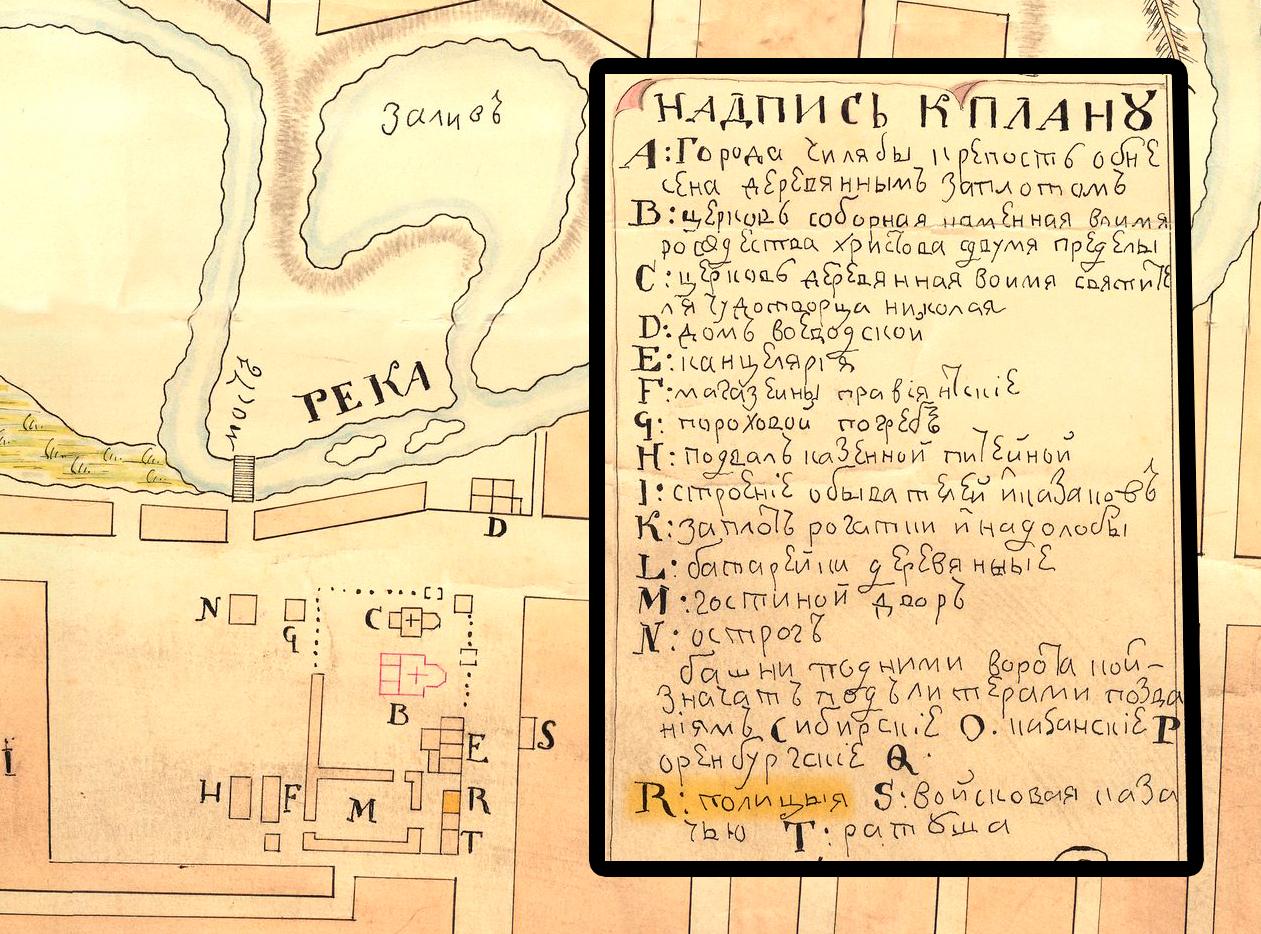 Заливъ
мостъ
РЕКА
D
N
G
C
B
E
S
I
H
F
M
R
T
НАДПИСЬ К ПЛАНꙊ
A: Города Чилябы крепость обне
сена деревяннымъ заплотомъ
B: церковь соборная каменная воимя
рождества христова сдвумя пределы
C: церковь деревянная воимя святите
ля чудотворца николая
D: домъ воеводскои
E: канцелярїя
F: магазеины правїянтскїе
G: пороховои погребъ
H: подвалъ казенной питейной
I: строенїе обывателей иказаковъ
K: заплотъ рогатки инадолобы
L: батарейки деревянные
M: гостиной дворъ
N: острогъ
башни подними ворота кои-
значатъ подълитерами позва
нїямъ Сибирскїе O. казанскїе P
оренбургскїе Q.
R: полицыя S: войсковая каза
чью T: ратꙋша